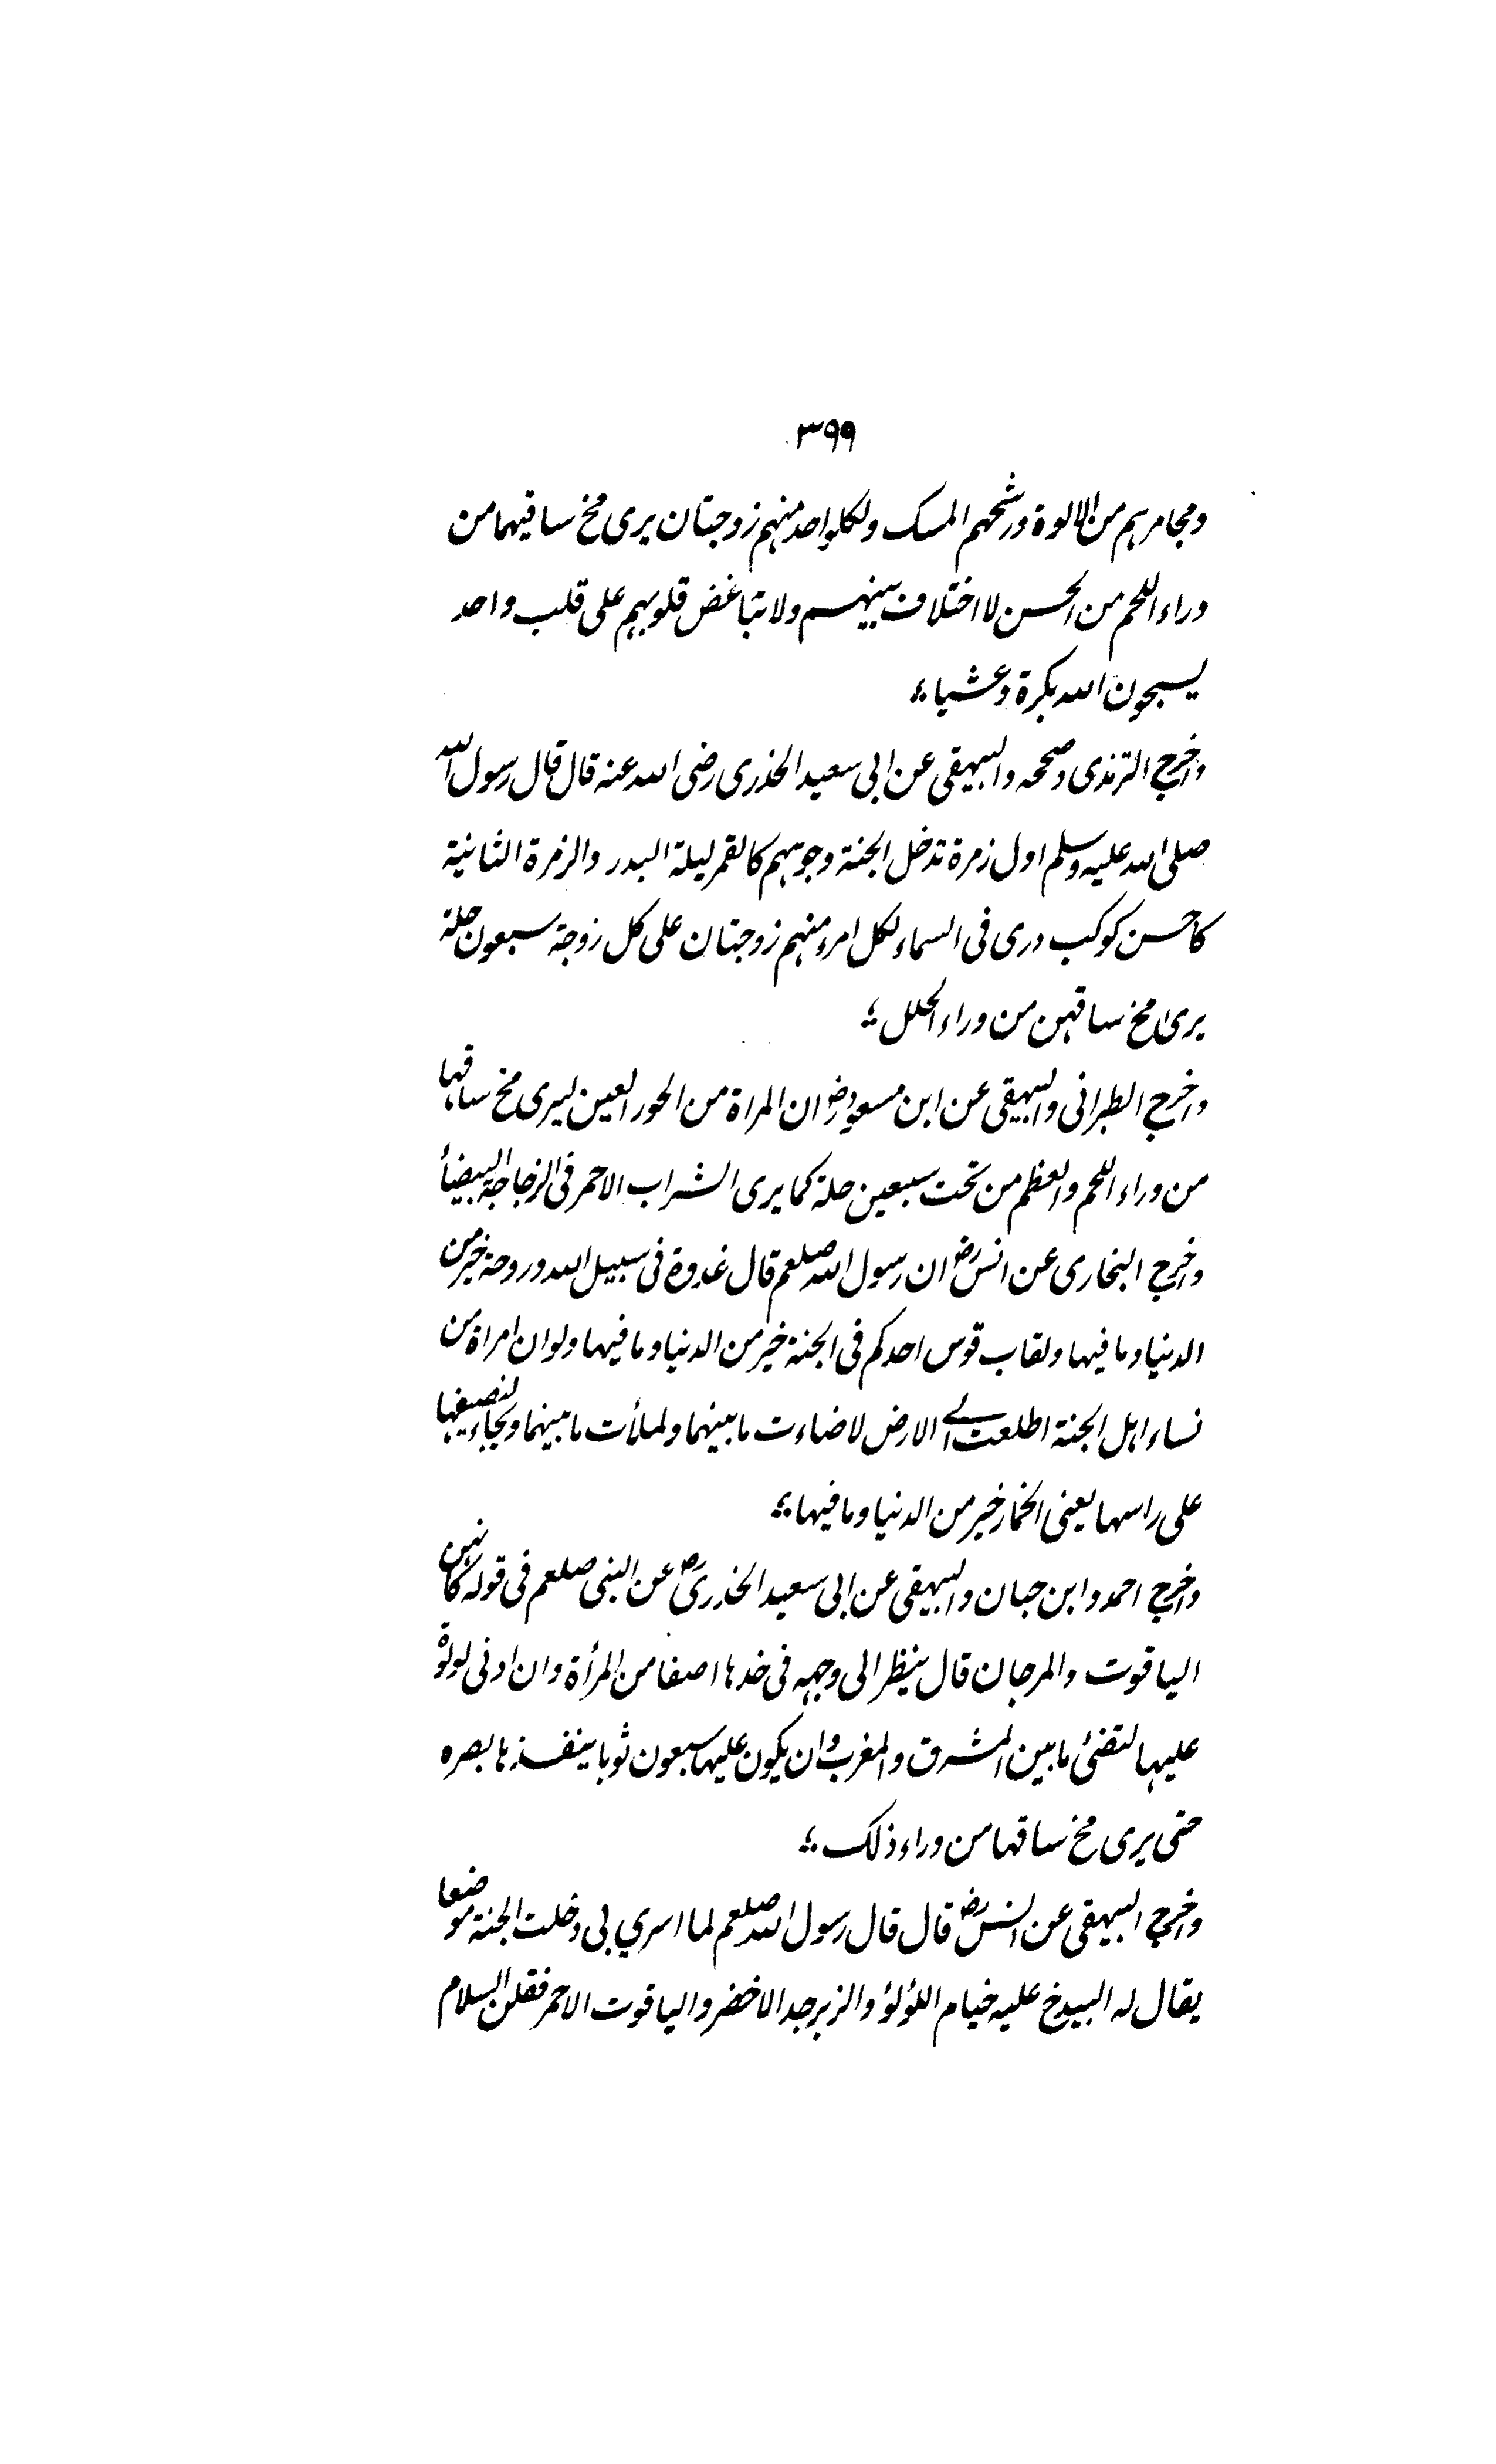 ۳۹۹
ومجامرہم من الالوة ورشحہم المسک ولکل واحد منہم زوجتان یری مخ ساقیہما من
وراء اللحم من الحسن لا اختلاف بینہم ولا تباغض قلوبہم علی قلب واحد
یسبحون اللہ بکرة وعشیا ؛
واخرج الترمذی وصححہ والبیہقی عن ابی سعید الخذری رضی اللہ عنہ قال قال رسول اللہ
صلی اللہ علیہ وسلم اول زمرة تدخل الجنة وجوہہم کالقمر لیلة البدر والزمرة الثانیة
کاحسن کوکب دری فی السماء لکل امرء منہم زوجتان علی کل زوجة سبعون حلة
یریٰ مخ ساقہن من وراء الحلل ؛
واخرج الطبرانی والبیہقی عن ابن مسعود رض ان المراة من الحور العین لیری مخ ساقہا
من وراء اللحم والعظم من تحت سبعین حلة کما یری الشراب الاحمر فی الزجاجة البیضأ
واخرج البخاری عن انس رض ان رسول اللہ صلعم قال غدوة فی سبیل اللہ وروحة خیر من
الدنیا وما فیہا ولقاب قوس احدکم فی الجنة خیر من الدنیا وما فیہا ولو ان امراة من
نساء اہل الجنة اطلعت الی الارض لاضاءت ما بینہما ولملأت ما بینہما ریحا ولنصیفہا
علی راسہا یعنی الخمار خیر من الدنیا وما فیہا ؛
واخرج احمد وابن حبان والبیہقی عن ابی سعید الخذری رض عن النبی صلعم فی قولہ کانہن
الیاقوت والمرجان قال ینظر الی وجہہ فی خدہا اصفا من المرأة وان ادنی لولوة
علیہا لتضئ ما بین المشرق والمغرب وان یکون علیہا سبعون ثوبا ینفذہا بصرہ
حتی یری مخ ساقہا من وراء ذلک ؛
واخرج البیہقی عن انس رض قال قال رسول اللہ صلعم لما اسری بی دخلت الجنة موضعا
یقال لہ البیدخ علیہ خیام اللؤلؤ والزبرجد الاخضر والیاقوت الاحمر فقلن السلام